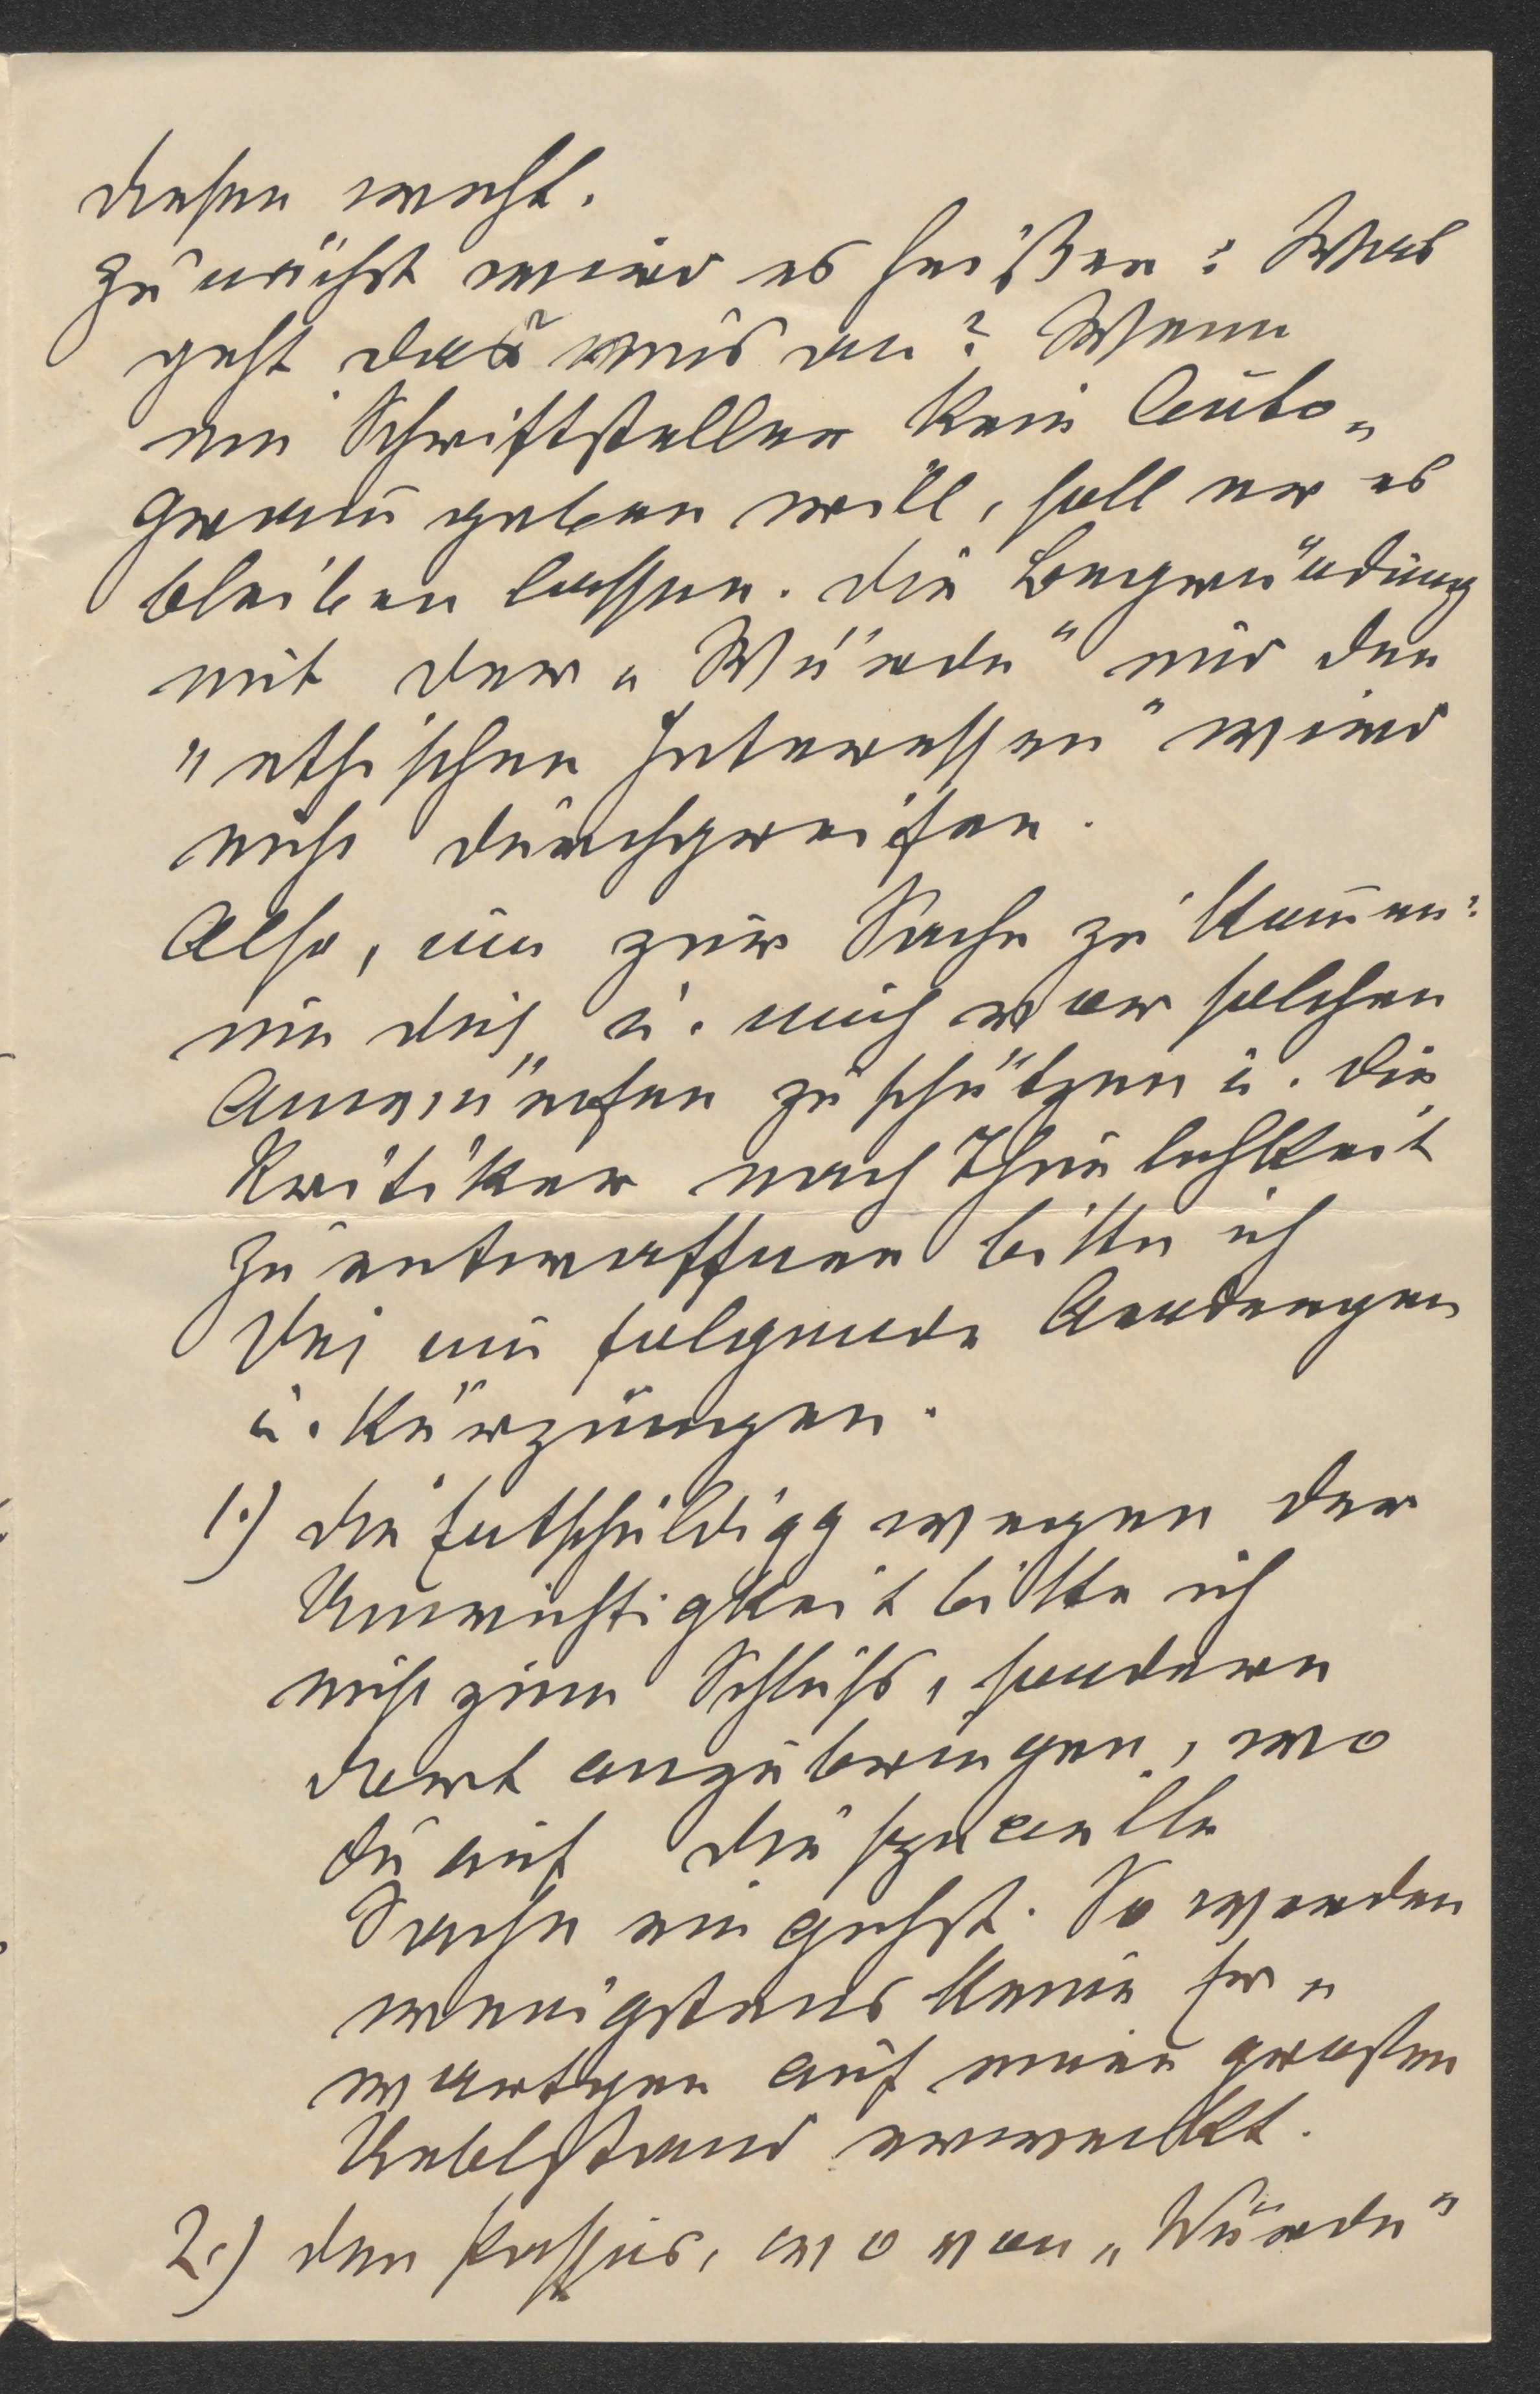 diesen macht.
Zunächst wird es heißen: Was
geht das uns an? Wenn
ein Schriftsteller kein Auto„
gramm geben will, soll er es
bleiben lassen. Die Begründung
mit der „Würde" und den
„ethischen Interessen" wird
nicht durchgreifen.
Also, um zur Sache zu kommen:
um dich u. mich vor solchen
Anwürfen zu schützen u. die
Kritiker nach Thunlichkeit
zu entwaffnen bitte ich
Dich um folgende Aenderungen
u. Kürzungen.
1.) Die Entschuldigg wegen der
Unwichtigkeit bitte ich
nicht zum Schluß, sondern
dort anzubringen, wo
Du auf die specielle
Sache eingehst. So werden
wenigstens keine Er„
wartgen auf einen großen
Uebelstand erweckt.
2.) Den Passus, wo von „Würde"